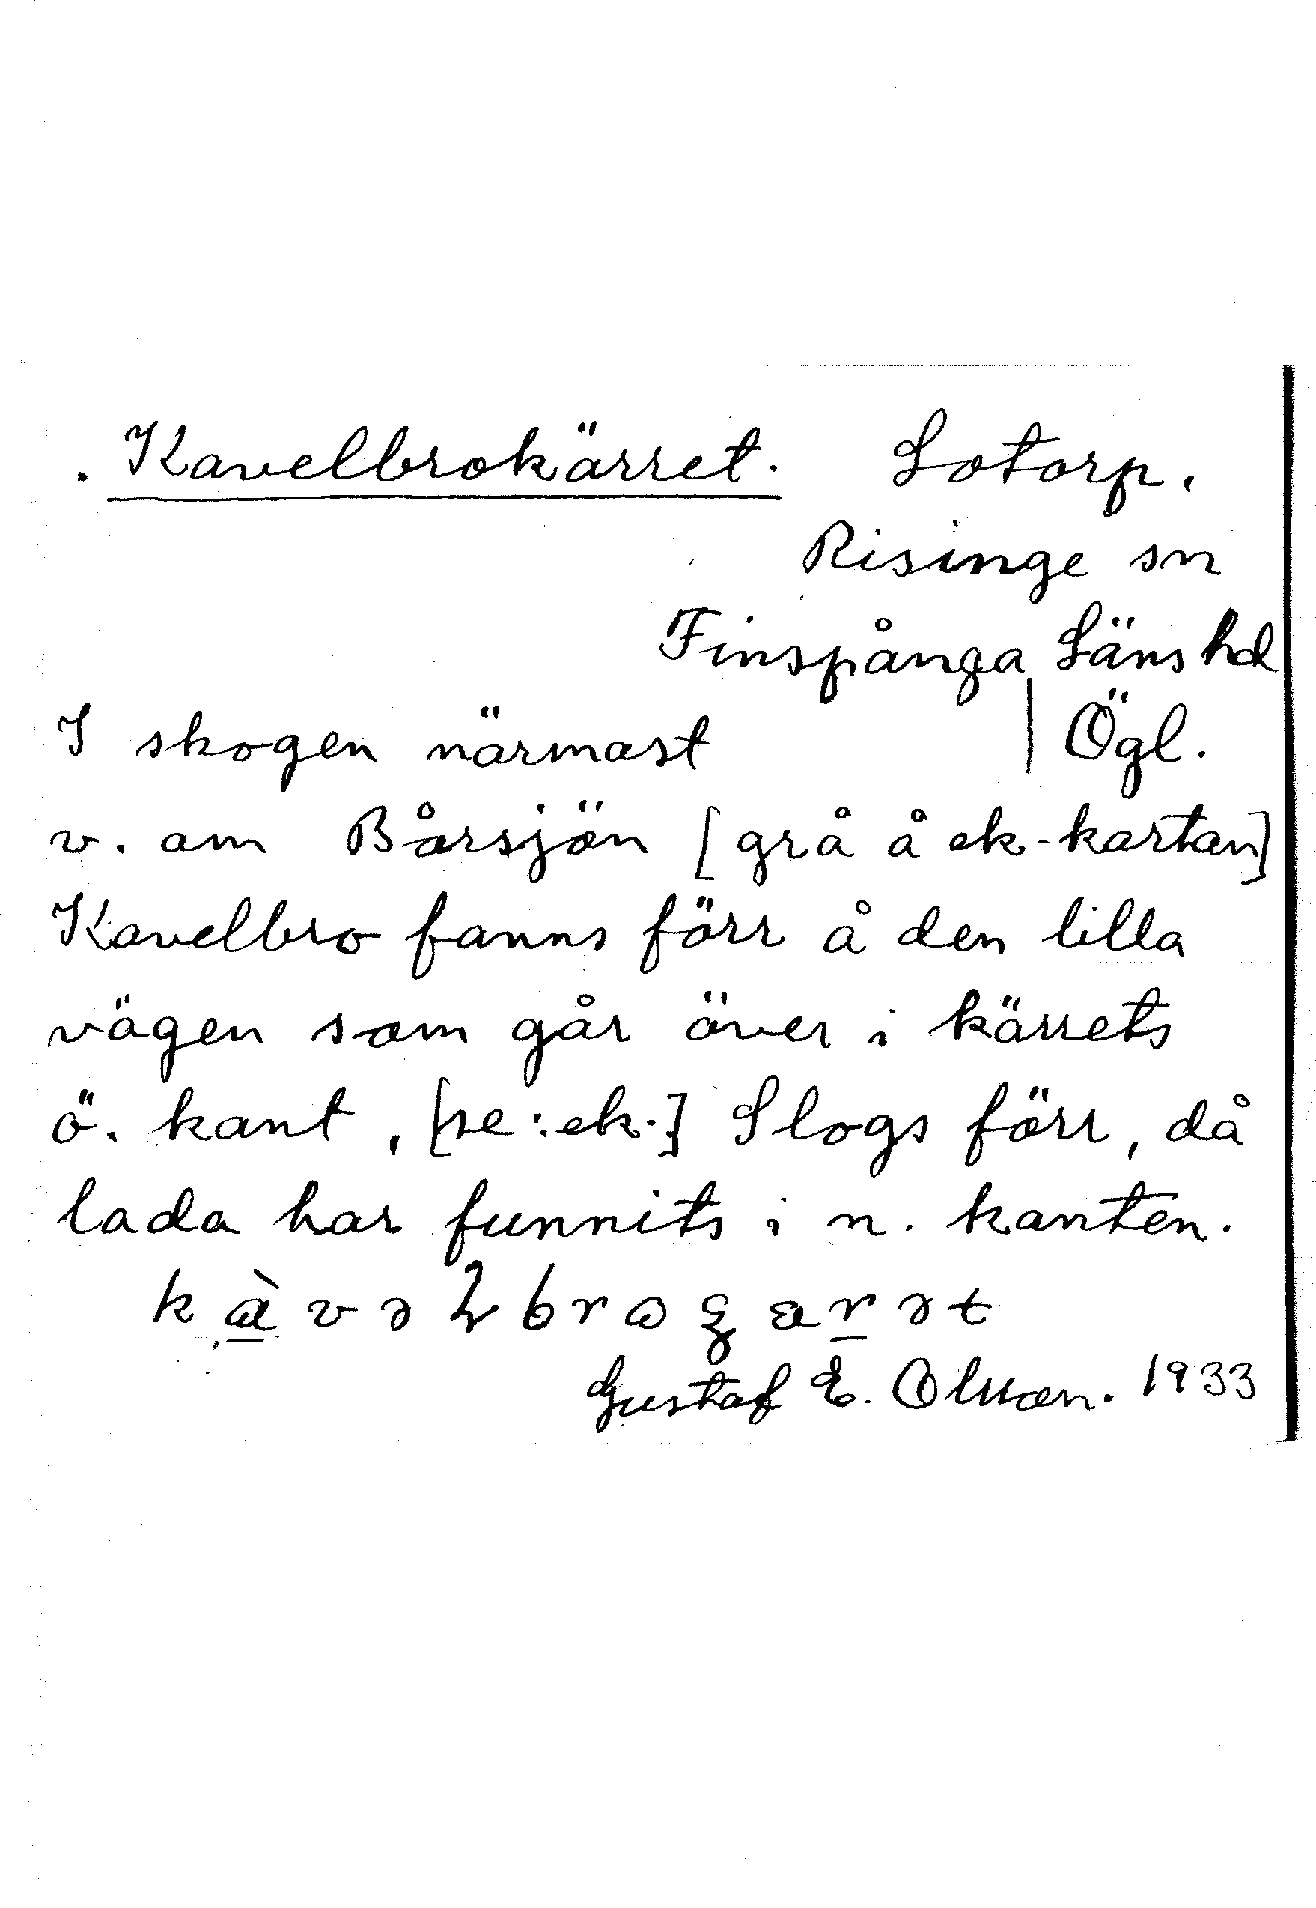 . Kavelbrokärret. Lotorp.
Risinge sn
Finspånga Läns hd
I skogen närmast | Ögl.
v. om Bårsjön [grå å ek-kartan]
Kavelbro fanns förr å den lilla
vägen som går över i kärrets
ö. kant, [se: ek.] Slogs förr, då
lada har funnits i n. kanten.
Gustaf E. Olsson. 1933